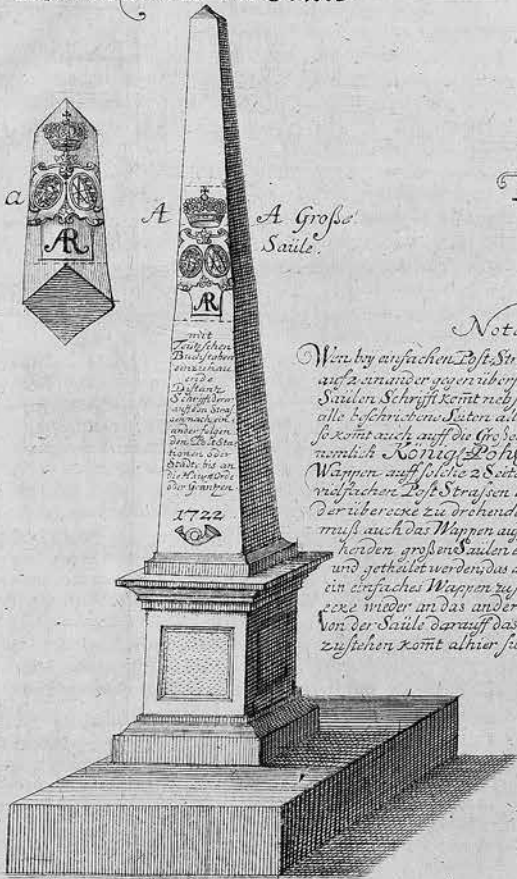 a
A
A Große
Saüle.
AR
AR
mit
Teutschen
Buchstaben
einzuhau
ende
Distanz
Schrifft derer
auff den Stras
sen nach ein
ander folgen
den Post Sta
tionen oder
Städte bis an
die Haupt Orte
oder Grentzen
1722
Nota
Wen bey einfachen Post Str
auf 2 einander gegen über
Säulen Schrifft kom̄t neb
alle beschriebene Seiten al
so kom̄t auch auff die Große
nemlich König Pohl
Wappen auff solche 2 Seite
vielfachen Post Strassen
der überecke zu drehende
muß auch das Wappen au
henden großen Säulen e
und getheilt werden, das
ein einfaches Wappen zu
ecke wieder an das ander
von der Saüle darauff das
zu stehen kom̄t alhier